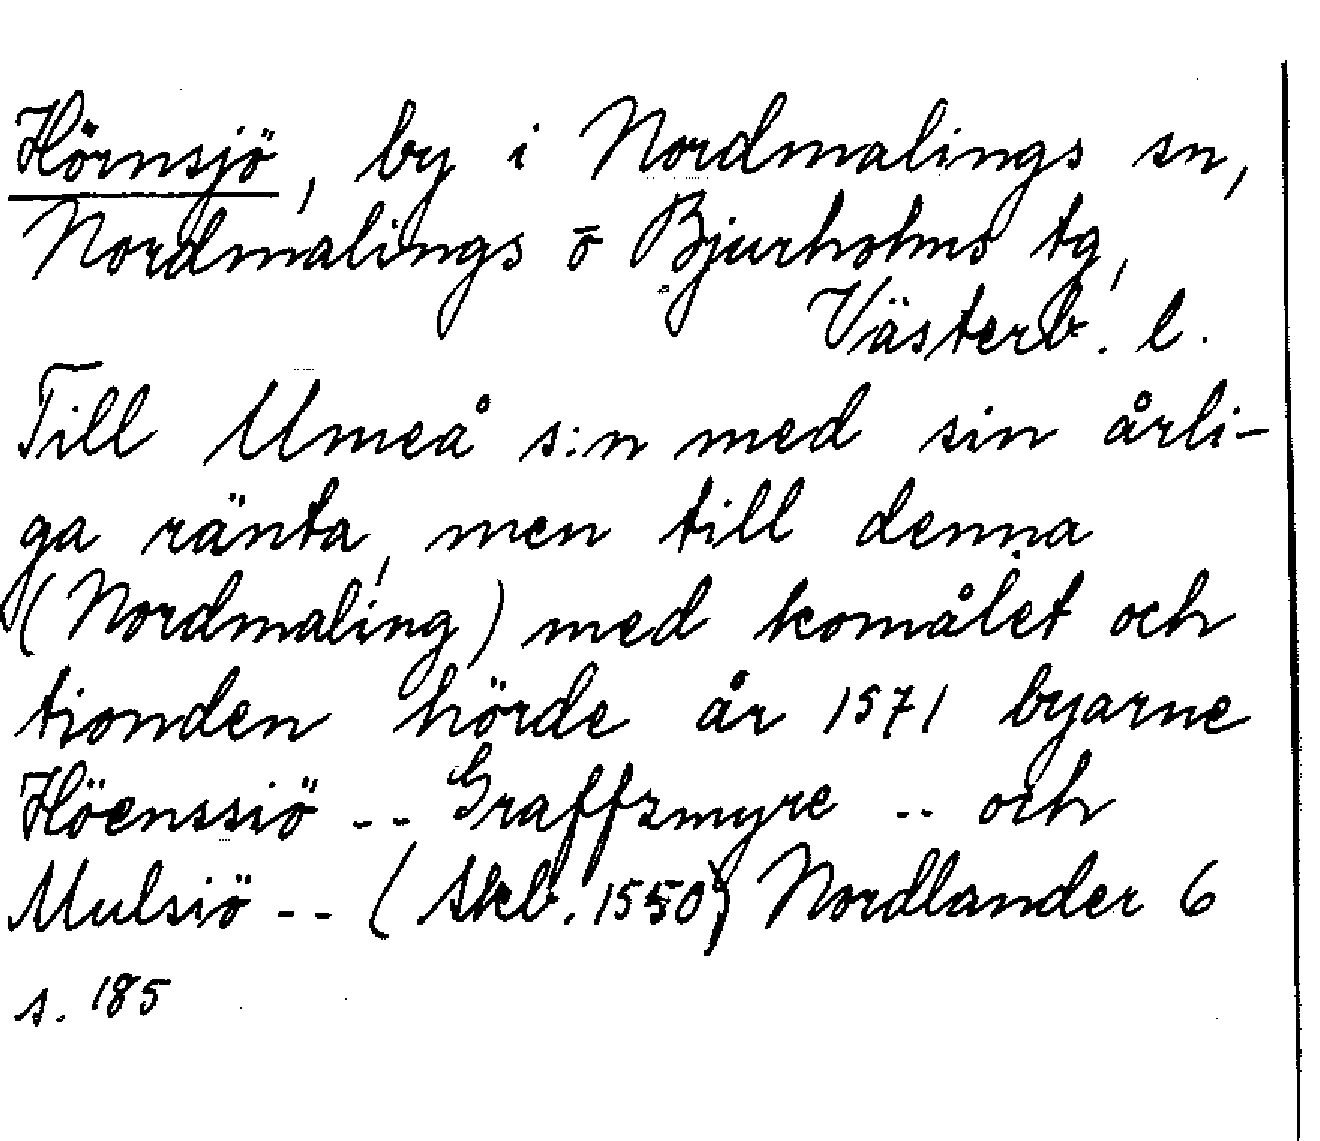 Hörnsjö, by i Nordmalings sn,
Nordmalings o Bjurholms tg,
Västerb. l.
Till Umeå s:n med sin årli-
ga ränta, men till denna
(Nordmaling) med komålet och
tionden hörde år 1571 byarne
Höenssiö -- Graffzmyre -- och
Mulsiö -- (Skb. 1550) Nordlander 6
s. 185